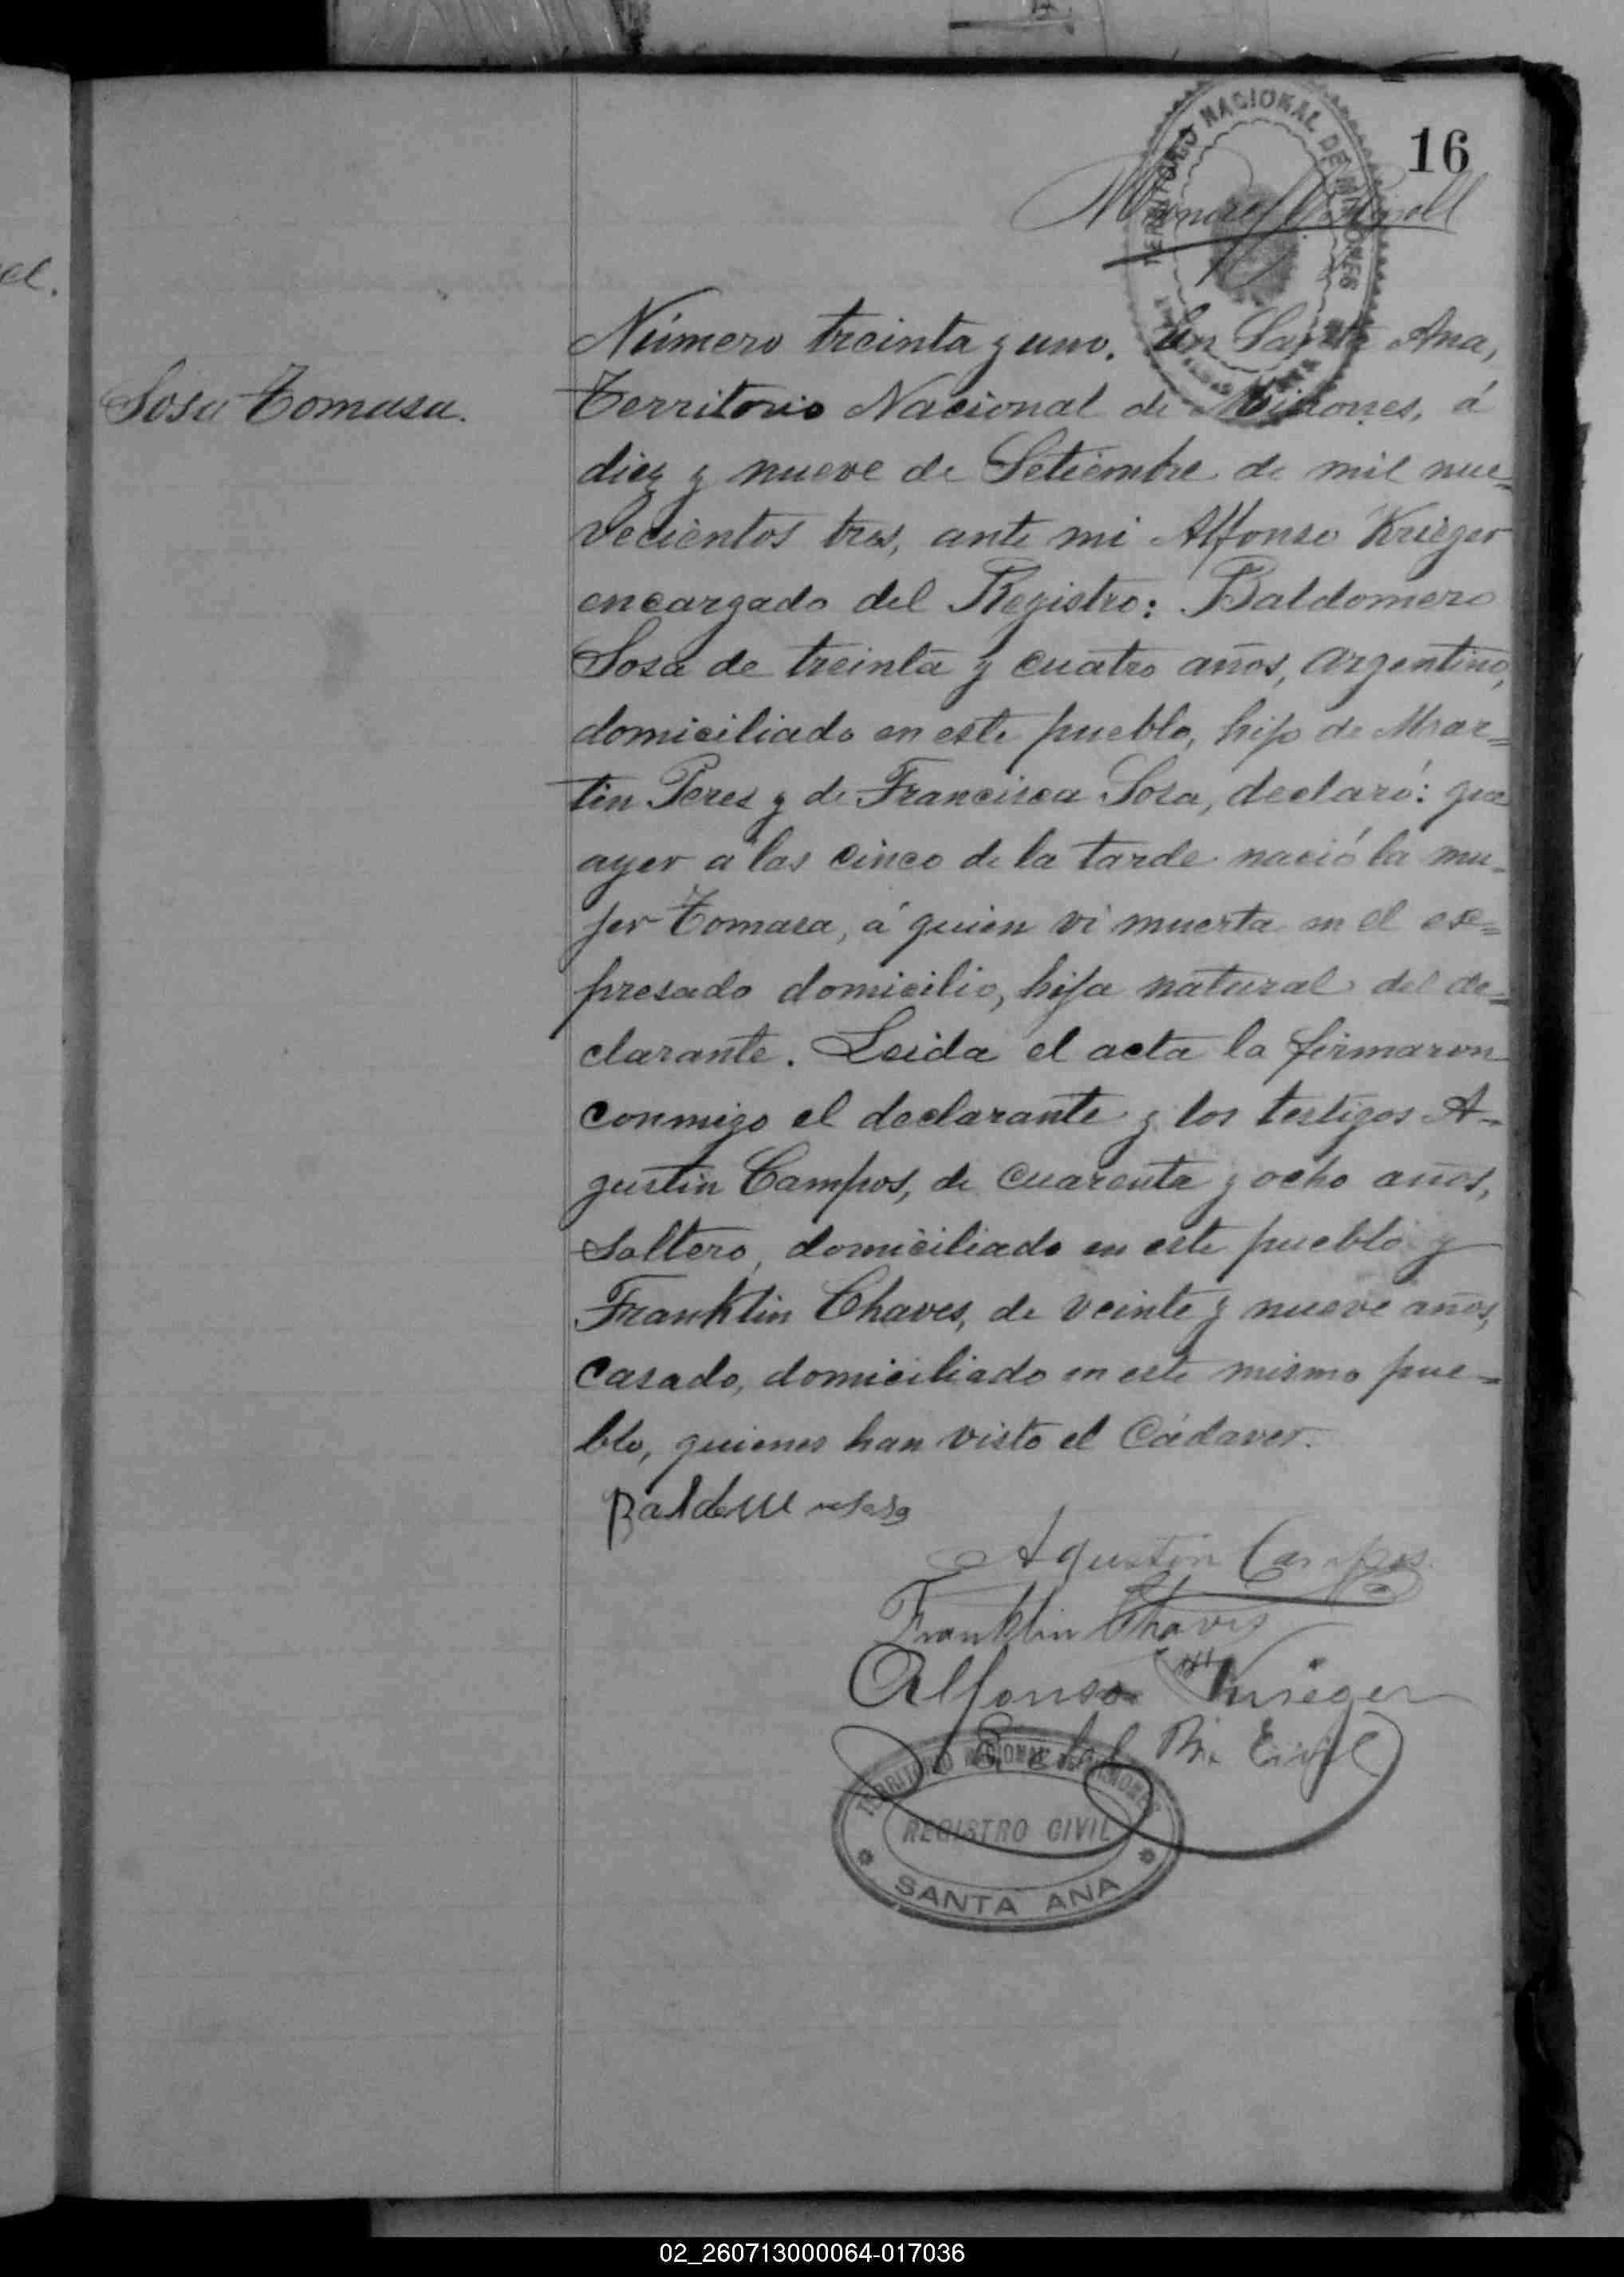 16
TERRITORIO NACIONAL DE MISIONES
Número treinta y uno. En Santa Ana,
Sosa Tomasa.
Territorio Nacional de Misiones, á
diez y nueve de Setiembre de mil nue=
vecientos tres, ante mi Alfonso Krieger
encargado del Registro: Baldomero
Sosa de treinta y cuatro años, argentino,
domiciliado en este pueblo, hijo de Mar=
tin Peres y de Francisca Sosa, declaró: que
ayer a las cinco de la tarde nació la mu=
jer Tomasa, á quien vi muerta en el ex=
presado domicilio, hija natural del de=
clarante. Leida el acta la firmaron
conmigo el declarante y los testigos A=
gustin Campos, de cuarenta y ocho años,
soltero, domiciliado en este pueblo y
Franklin Chaves, de veinte y nueve años,
casado, domiciliado en este mismo pue=
blo, quienes han visto el Cádaver.
Agustin Campos
Franklin Chaves
Alfonso Krieger
TERRITORIO NACIONAL DE MISIONES
REGISTRO CIVIL
SANTA ANA
02_260713000064-017036